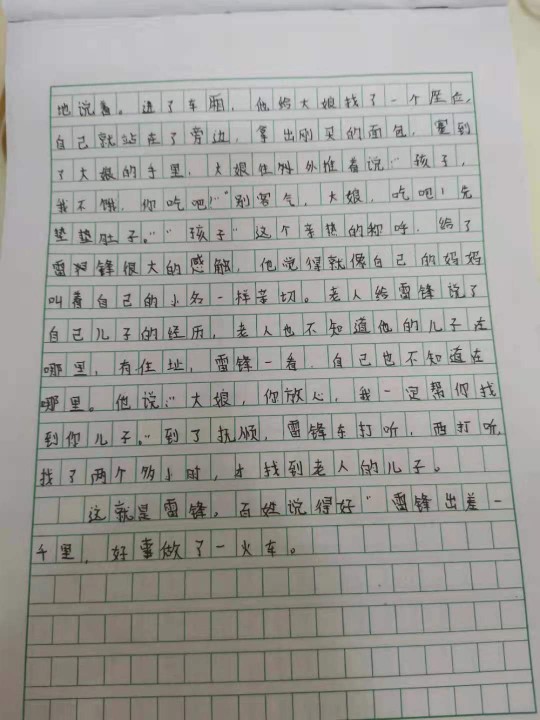 地说着。进了车厢，他给大娘找了一个座位，
自己就站在了旁边，拿出刚买的面包，塞到
了大娘的手里，大娘往外推着说：“孩子，
我不饿，你吃吧！”“别客气，大娘，吃吧！先
垫垫肚子。”“孩子”这个亲热的称呼，给了
雷锋很大的感触，他觉得就像自己的妈妈
叫着自己的小名一样亲切。老人给雷锋说了
自己儿子的经历，老人也不知道他的儿子在
哪里，有住址，雷锋一看，自己也不知道在
哪里。他说：“大娘，你放心，我一定帮你找
到你儿子。”到了抚顺，雷锋东打听，西打听，
找了两个多小时，才找到老人的儿子。
这就是雷锋，百姓说得好“雷锋出差一
千里，好事做了一火车。